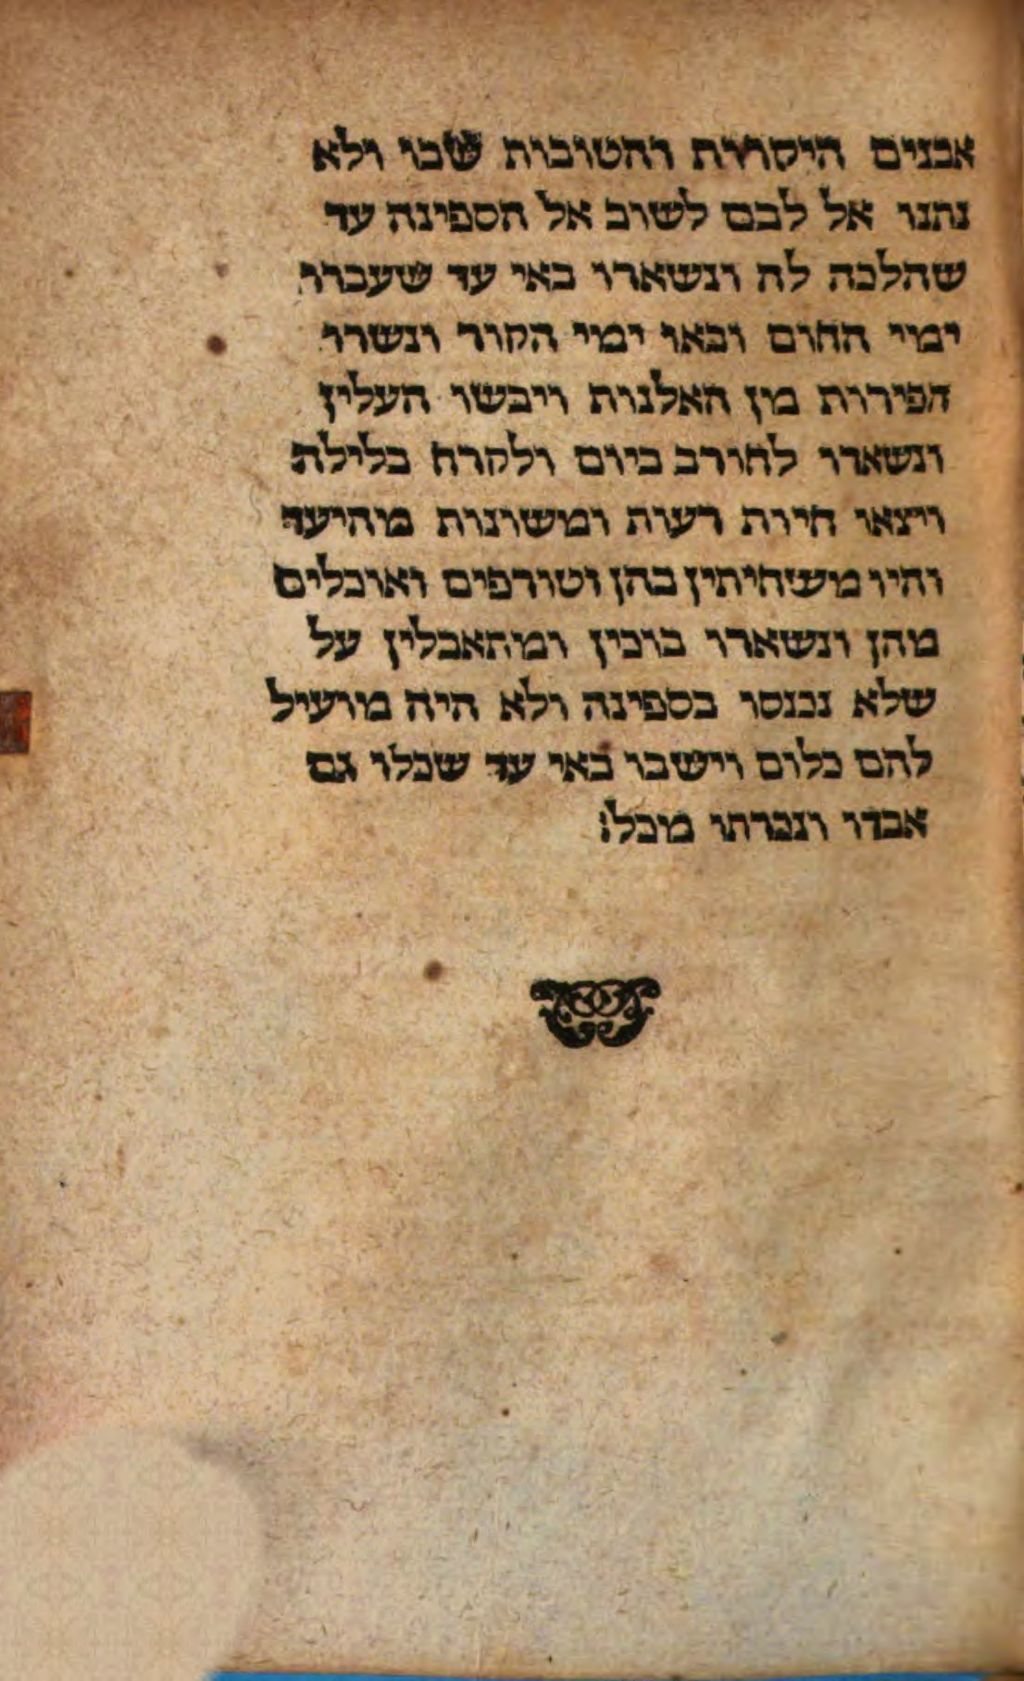 אבנים היקרות והטובות שבו ולא
נתנו אל לבם לשוב אל הספינה עד
שהלכה לה ונשארו באי עד שעברו
ימי החום ובאו ימי הקור ונשרו
הפירות מן האלנות ויבשו העלין
ונשארו לחורב ביום ולקרח בלילה
ויצאו חיות רעות ומשונות מהיער
והיו משחיתין בהן וטורפים ואוכלים
מהן ונשארו בוכין ומתאבלין על
שלא נכנסו בספינה ולא היה מועיל
להם כלום וישבו באי עד שכלו גם
אבדו ונכרתו מכל: